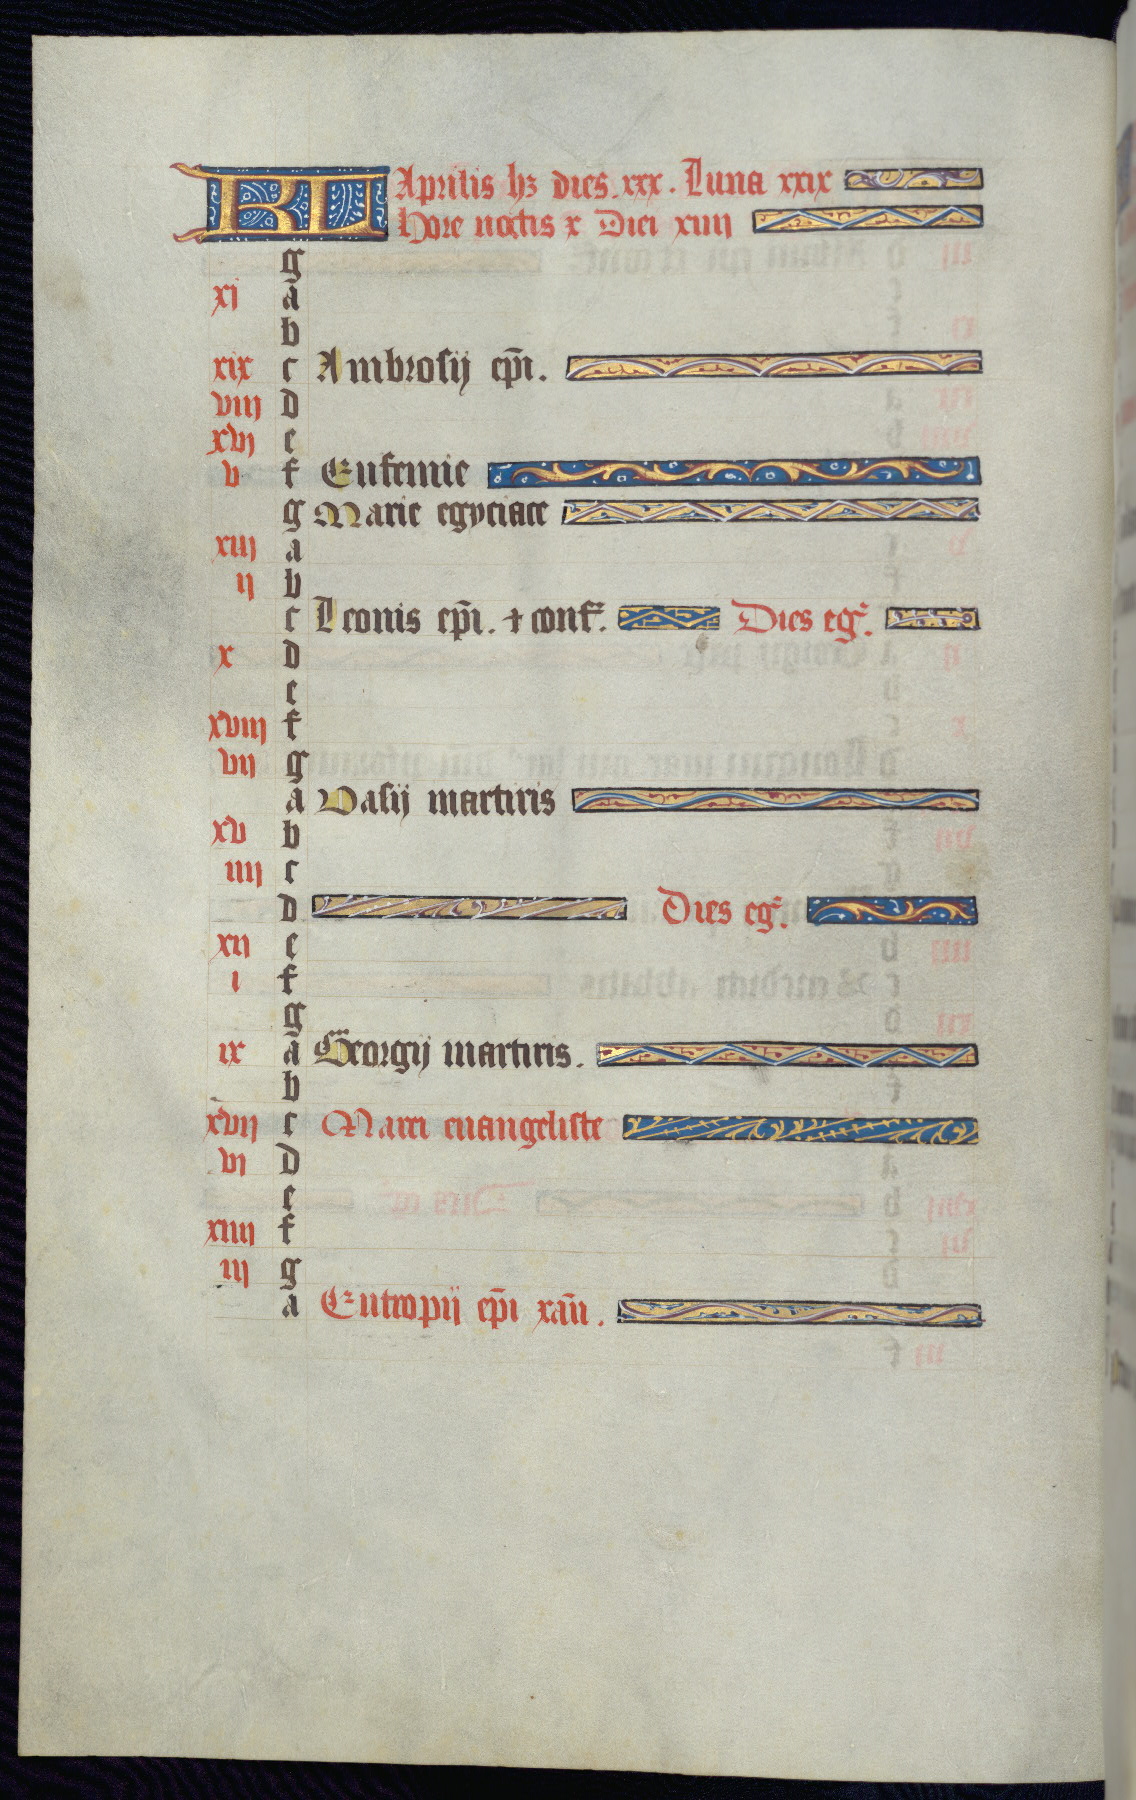 KL Aprilis hʒ dies. xxx. Luna xxix
Hore noctis x Diei xiiij
g
xj a
b
xix c Ambrosij ep̄i.
viij d
xvj e
v f Eufemie
g Marie egyciace
xiij a
ij b
c Leonis ep̄i. ⁊ conf. Dies eg.
x d
e
xviij f
vij g
a Vasij martiris
xv b
iiij c
d Dies eg.
xij e
i f
g
ix a Georgij martiris.
b
xvij c Marci euangeliste
vi d
e
xiiij f
iij g
a Eutropij ep̄i xān.